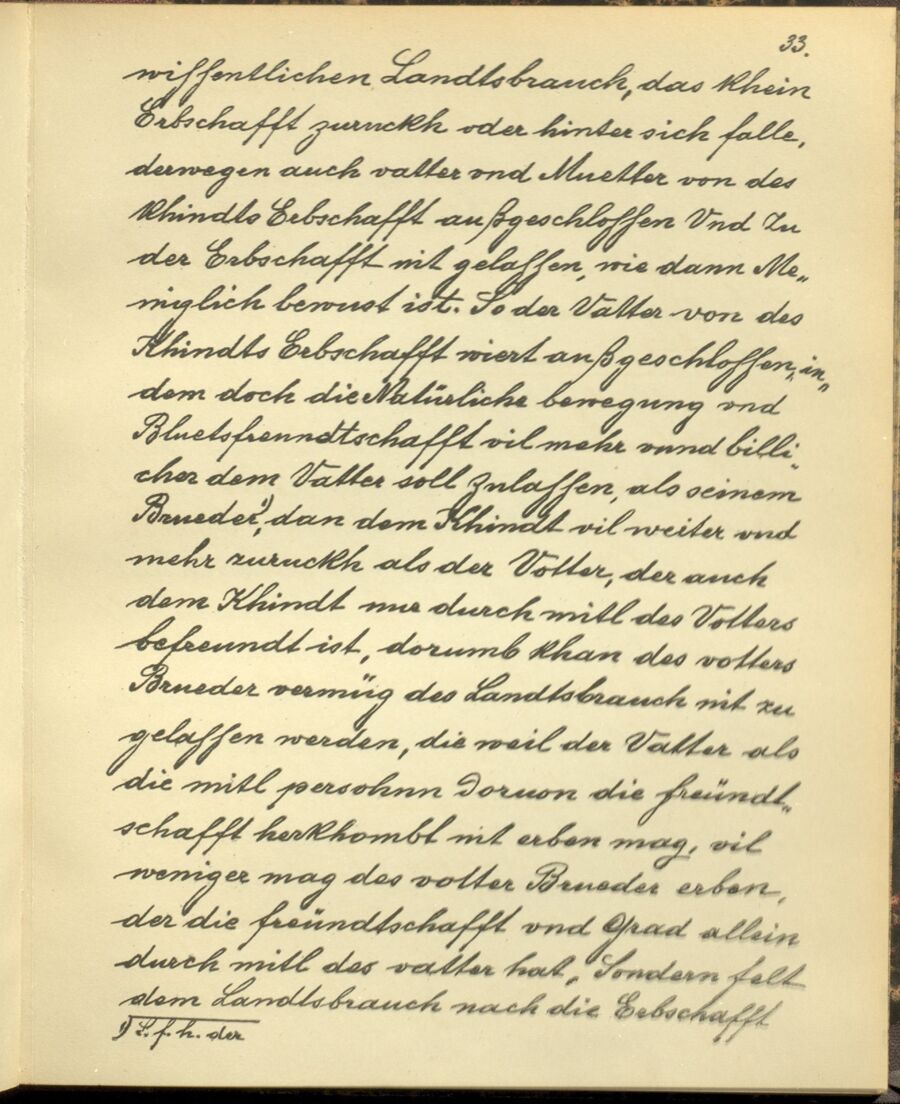 33.
wissentlichen Landtsbrauch, das khein
Erbschafft zuruckh oder hinter sich falle,
derwegen auch vatter vnd Muetter von des
khindts Erbschafft außgeschlossen Vnd Zu
der Erbschafft nit gelassen, wie dann Me„
niglich bewust ist. So der Vatter von des
Khindts Erbschafft wiert außgeschlossen, in„
dem doch die Natürliche bewegung vnd
Bluetsfreundtschafft vil mehr vnnd billi„
cher dem Vatter soll Zulassen, als seinem
Brueder¹⁾, dan dem Khindt vil weiter vnd
mehr zuruckh als der Votter, der auch
dem Khindt nur durch mitl des Votters
befreundt ist, dorumb khan des votters
Brueder vermüg des Landtsbrauch nit zu
gelassen werden, die weil der Vatter als
die mitl persohnn Doruon die freündt„
schafft herkhombt nit erben mag, vil
weniger mag des votter Brueder erben,
der die freündtschafft vnd Grad allein
durch mitl des vatter hat, Sondern felt
dem Landtsbrauch nach die Erbschafft
¹⁾ L. f. h. der